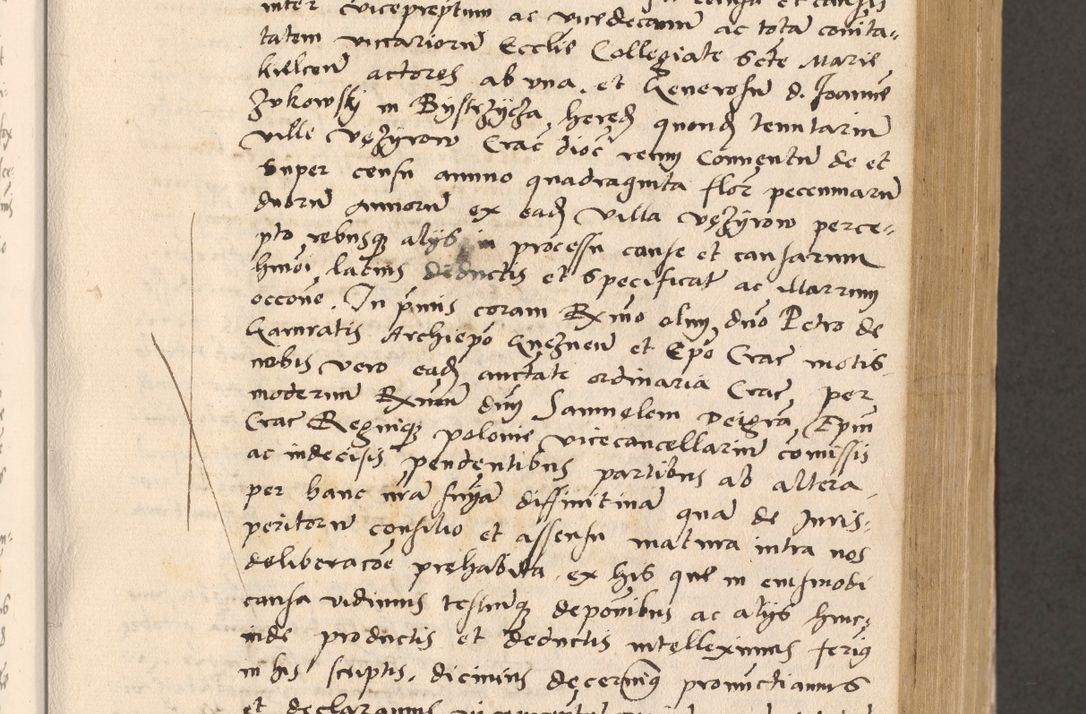 inter vicepreptum ac vicedecanum ac totā cōīta-
tatem vicariorū Ecclīe Collegiate Scte Marie
kielceñ actores ab vna, et Generosū d. Joannē
Zukowskj in Bystrzÿcza hered quond tenutariū
ville Vężÿrow Crac dioc reum Conuentū de et
super censu annuo quadraginta flor pecuniarū
duorū annorū ex ead villa Vężÿrow perce-
pto rebusq alÿs in processu cause et causarum
hmōi latius deductis et specificat ac illarum
occōne. In p̄mis coram Rx̄mo olim dn̄o Petro de
Gamratis Archiepō Gneznen̄ et Epō Crac motis
nobis vero ead auctāte ordinaria Crac, per
modernū Rx̄mum dn̄m Samuelem Dei grā Epm
Crac Regniq polonie vicecancellariū cōmissis
ac indecisis pendentibus partibus ab altera
per hanc nrā sniā diffinitiuā quā de Juris-
peritorū consilio et assensu matura intra nos
deliberacōe prehabita, ex his que in eiusmodi
causa vidimus testiūq deponibus ac alÿs hinc-
inde productis et deductis intelleximus feriq
in his scriptis, dicimus decernimq pronunctiamus
et declaramus